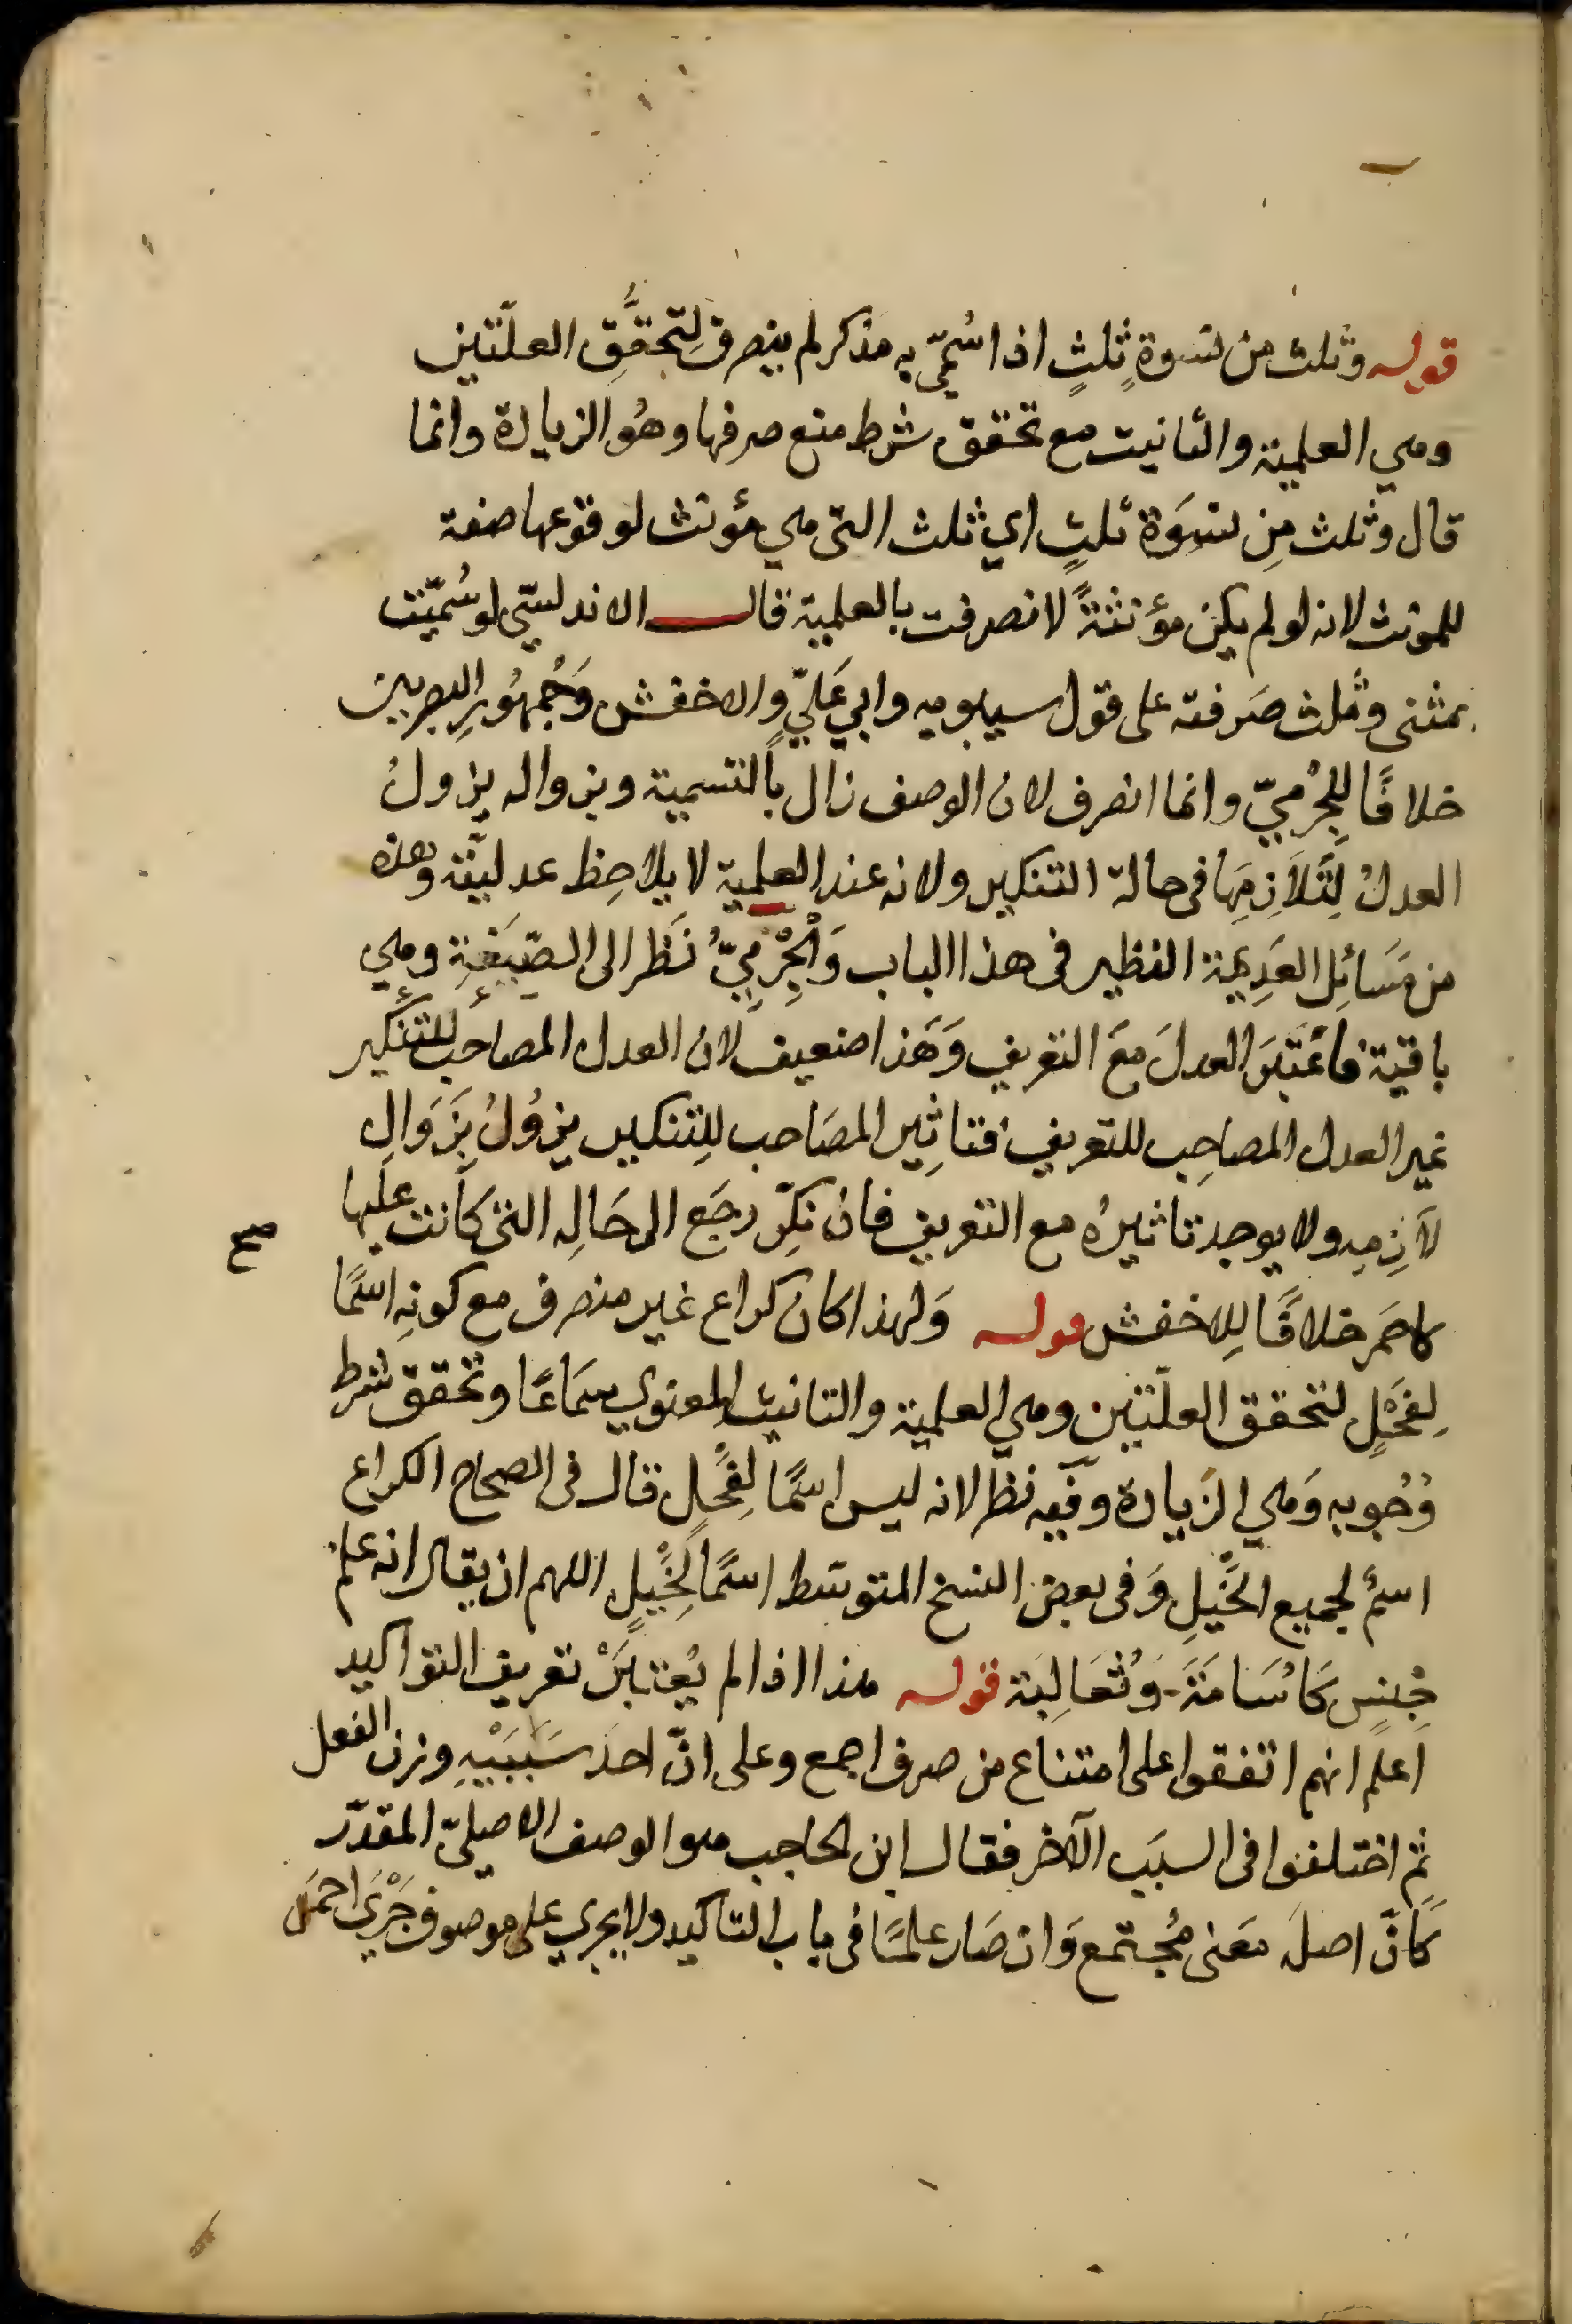 قوله وثلث من نسوة ثلثٍ اذا سُمّي به مذكر لم ينصرف لِتحقُّقِ العلّتين
وهي العلمية والتانيث مع تحقق شرط منع صرفها وهُو الزيادة وانما
قال وثلث مِن نسوَة ثلثٍ اي ثلث التي هي مؤنث لوقوعها صفة
للمونث لانه لو لم يكن مؤنثةً لانصرفت بالعلمية قال الاندلسيّ لو سُمّيت
بمثنى وثلث صَرفته على قول سيبويه وابي عَليٍّ والاخفش وَجُمهُورِ البصريين
خلافًا لِلجَرْميّ وانما انصرف لان الوصف زال بالتسمية وبزواله يزولُ
العدلُ لِتَلاَزِمِهَا في حالة التنكير ولانه عند العلمية لا يلاحِظ عدليّته وهذه
من مَسَائِل العَدِيمة النظير في هذا الباب وَالجَرْمِيُّ نَظَر الى الصّيَغةِ وهي
باقية فاعْتَبَرَ العدلَ مَعَ التعريف وَهَذا ضعيف لان العدل المصاحب للتنكير
غير العدل المصاحِب للتعريف فتاثِير المصَاحب لِلتنكير يزوُلُ بِزَوَالِ
لاَزِمِه ولا يوجد تاثيرهُ مع التعريف فان نكِّر رجَع الى حَالِه التي كَانت عليها صح
كاحمَر خلافًا لِلاخفش قوله وَلهذا كان كراع غير منصرف مع كونِه اسمًا
لِفَحْلٍ لتحقق العلّتين وهي العلمية والتانيث المعنوي سمَاعًا وتحقق شرط
وُجُوبه وَهي الزيادة وفيه نظر لانه ليس اسمًا لِفَحْلٍ قال في الصحاح الكراع
اسمُ لجميع الخَيْلِ وَفي بعض النسخ المتوسط اسمًا لِخَيْلٍ اللهم ان يقال انه علم
جِنسٍ كَاسُامَةَ وَثُعَالِبَة قوله هذا اذا لم يُعتبَرْ تعريف التواكيد
اعلم انهم اتفقوا على امتناع من صرف اجمع وعلى انّ احد سَبَبَيْهِ وزن الفعل
ثم اختلفوا في السبَب الآخر فقال ابن الحاجب هو الوصف الاصليّ المقدّر
كَانّ اصلَه مَعنى مُجتمع وَان صَار علمًا في باب التاكيد ولا يجري على موصوف جَرْيَ احمَر